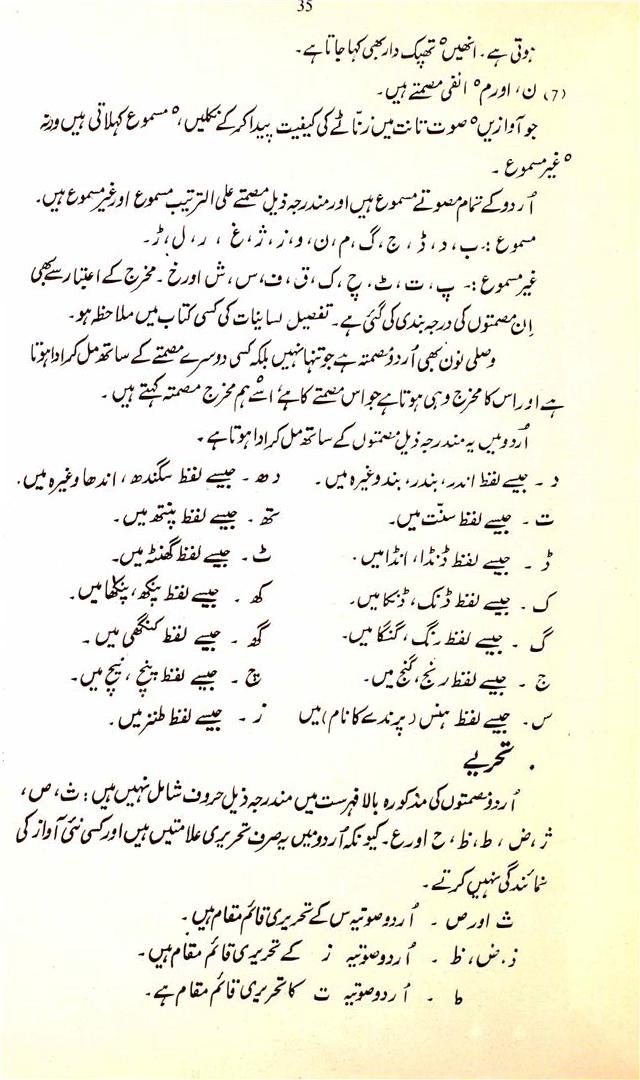 35
ہوتی ہے۔ انھیں° تھپک دار بھی کہا جاتا ہے۔
(7) ن، اور م° انفی مصمتے ہیں۔
جو آوازیں° صوت تانت میں زنّاٹے کی کیفیت پیدا کر کے نکلیں،° مسموع کہلاتی ہیں ورنہ
° غیر مسموع ۔
اُردو کے تمام مصوتے مسموع ہیں اور مندرجہ ذیل مصمتے علی الترتیب مسموع اور غیر مسموع ہیں۔
مسموع :۔ ب، د، ڈ، ج، گ، م، ن، و، ز، ژ، غ ، ر، ل، ڑ۔
غیر مسموع :۔ پ، ت، ٹ، چ، ک، ق، ف، س، ش اور خ ۔ مخرج کے اعتبار سے بھی
اِن مصمتوں کی درجہ بندی کی گئی ہے۔ تفصیل لسانیات کی کسی کتاب میں ملاحظہ ہو۔
وصلی نون بھی اُردو مصمتہ ہے جو تنہا نہیں بلکہ کسی دوسرے مصمتے کے ساتھ مل کر ادا ہوتا
ہے اور اس کا مخرج وہی ہوتا ہے جو اس مصمتے کا ہے، اسے° ہم مخرج مصمتہ کہتے ہیں ۔
اُردو میں یہ مندرجہ ذیل مصمتوں کے ساتھ مل کر ادا ہوتا ہے ۔
د ۔ جیسے لفظ اندر، بندر، بند وغیرہ میں ۔ دھ ۔ جیسے لفظ سگندھ، اندھا وغیرہ میں۔
ت ۔ جیسے لفظ سنّت میں۔ تھ ۔ جیسے لفظ پنتھ میں۔
ڈ ۔ جیسے لفظ ڈنڈا، انڈا میں ۔ ٹ ۔ جیسے لفظ گھنٹہ میں۔
ک ۔ جیسے لفظ ڈنک، ڈنکا میں۔ کھ ۔ جیسے لفظ پنکھ، پنکھا میں۔
گ ۔ جیسے لفظ رنگ، گنگا میں۔ گھ ۔ جیسے لفظ کنگھی میں ۔
ج ۔ جیسے لفظ رنج، گنج میں۔ چ ۔ جیسے لفظ پنچ ، نیچ میں۔
س ۔ جیسے لفظ ہنس (پرندے کا نام) میں ز ۔ جیسے لفظ طنز میں۔
• تحریے
اُردو مصمتوں کی مذکورہ بالا فہرست میں مندرجہ ذیل حروف شامل نہیں ہیں: ث، ص،
ذ، ض، ط، ظ، ح اور ع۔ کیونکہ اُردو میں یہ صرف تحریری علامتیں ہیں اور کسی نئی آواز کی
نمائندگی نہیں کرتے۔
ث اور ص ۔ اُردو صوتیہ س کے تحریری قائم مقام ہیں۔
ذ، ض، ظ ۔ اُردو صوتیہ ز کے تحریری قائم مقام ہیں۔
ط ۔ اُردو صوتیہ ت کا تحریری قائم مقام ہے۔